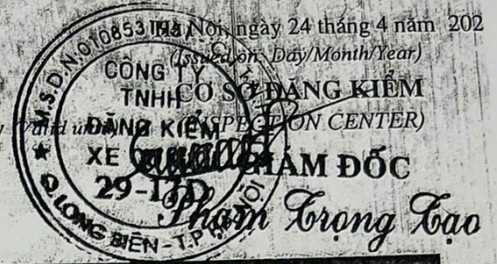 Hà Nội, ngày 24 tháng 4 năm 202
(Issued on: Day/Month/Year)
CƠ SỞ ĐĂNG KIỂM
(INSPECTION CENTER)
GIÁM ĐỐC
Phạm Trọng Tạo
M.S.D.N:010853
CÔNG TY
TNHH
ĐĂNG KIỂM
XE
29-17D
Q.LONG BIÊN - T.P HÀ NỘI